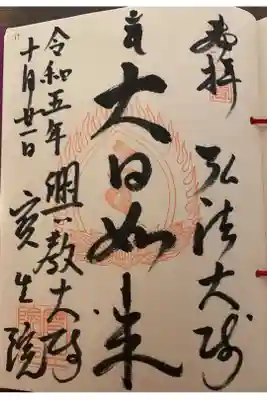 奉拝
弘法大師
大日如来
令和五年
十月廿一日
興教大師
寳生院